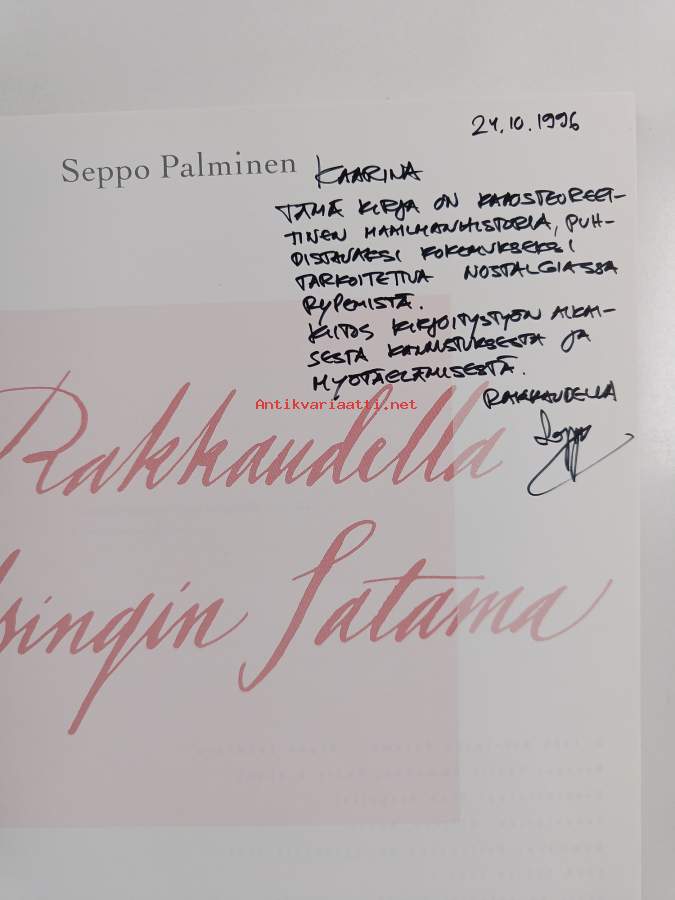 24.10.1996
Seppo Palminen
KAARINA
TÄMÄ KIRJA ON KAAOSTEOREET-
TINEN MAAILMANHISTORIA, PUH-
DISTAVAKSI KOKEMUKSEKSI
TARKOITETTUA NOSTALGIASSA
RYPEMISTÄ.
KIITOS KIRJOITUSTYÖN AIKAI-
SESTA KANNUSTUKSESTA JA
MYÖTÄELÄMISESTÄ.
RAKKAUDELLA
Seppo
Antikvariaatti.net
Rakkaudella
singin Satama